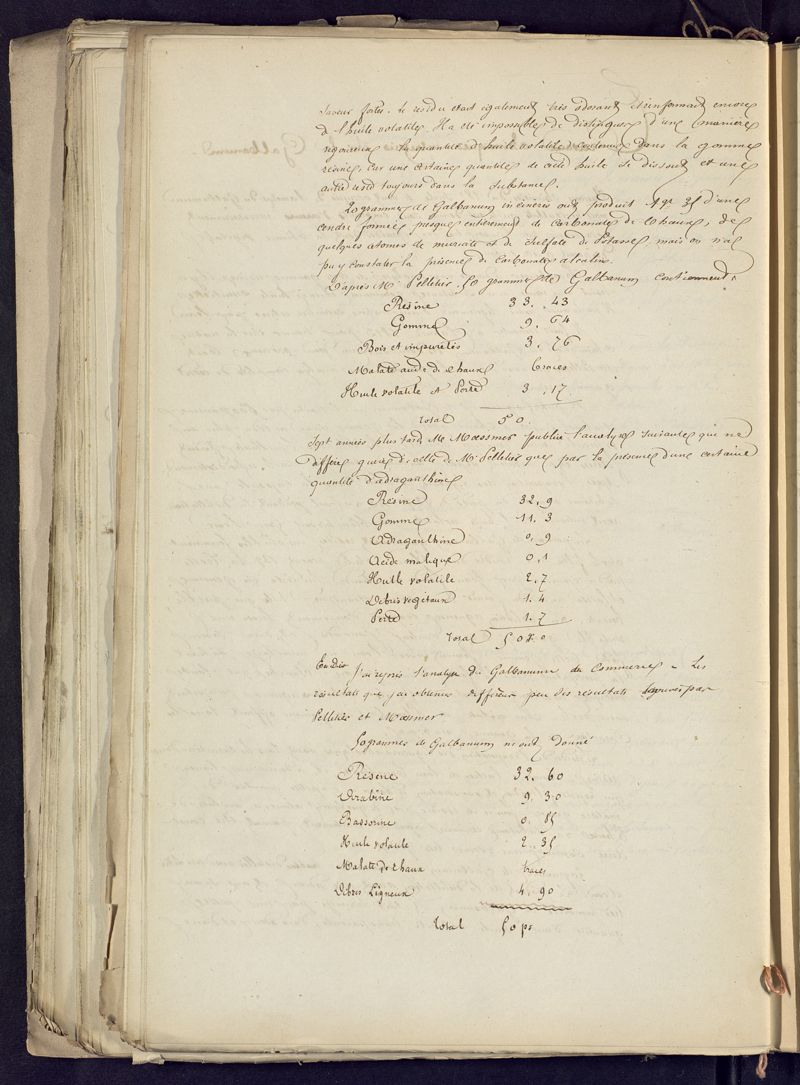 Saveur forte. le résidu était également très odorant et renfermait encore
de l'huile volatile. Il a été impossible de distinguer d'une manière
rigoureuse la quantité d'huile volatile contenue dans la gomme
résine, car une certaine quantité de cette huile se dissout et une
autre reste toujours dans la substance.
20 grammes de Galbanum incinérés ont produit 1gr 35 d'une
cendre formée presque entièrement de carbonate de chaux, de
quelques atomes de muriate et de sulfate de Potasse, mais on n'a
pu y constater la présence de carbonate alcalin.
D'après Mr Pelletier. 50 grammes de Galbanum contiennent.
Résine 33. 43
Gomme 9. 64
Bois et impuretés 3. 76
Malate acide de chaux traces
Huile volatile et perte 3. 17
Total 50.
Sept années plus tard Mr Meissner publia l'analyse suivante qui ne
diffère guère de celle de Mr Pelletier que par la présence d'une certaine
quantité d'adraganthine
Résine 32. 9
Gomme 11. 3
Adraganthine 0. 9
Acide malique 0. 1
Huile volatile 2. 7
Débris végétaux 1. 4
Perte 1. 7
Total 50. 0
J'ai repris l'analyse du Galbanum du Commerce. Les
résultats que j'ai obtenus diffèrent peu des résultats par
Pelletier et Meissner
50 grammes de Galbanum m'ont donné
Résine 32. 60
Arabine 9. 30
Bassorine 0. 85
Huile volatile 2. 35
Malate de chaux traces
Débris Ligneux 4. 90
Total 50